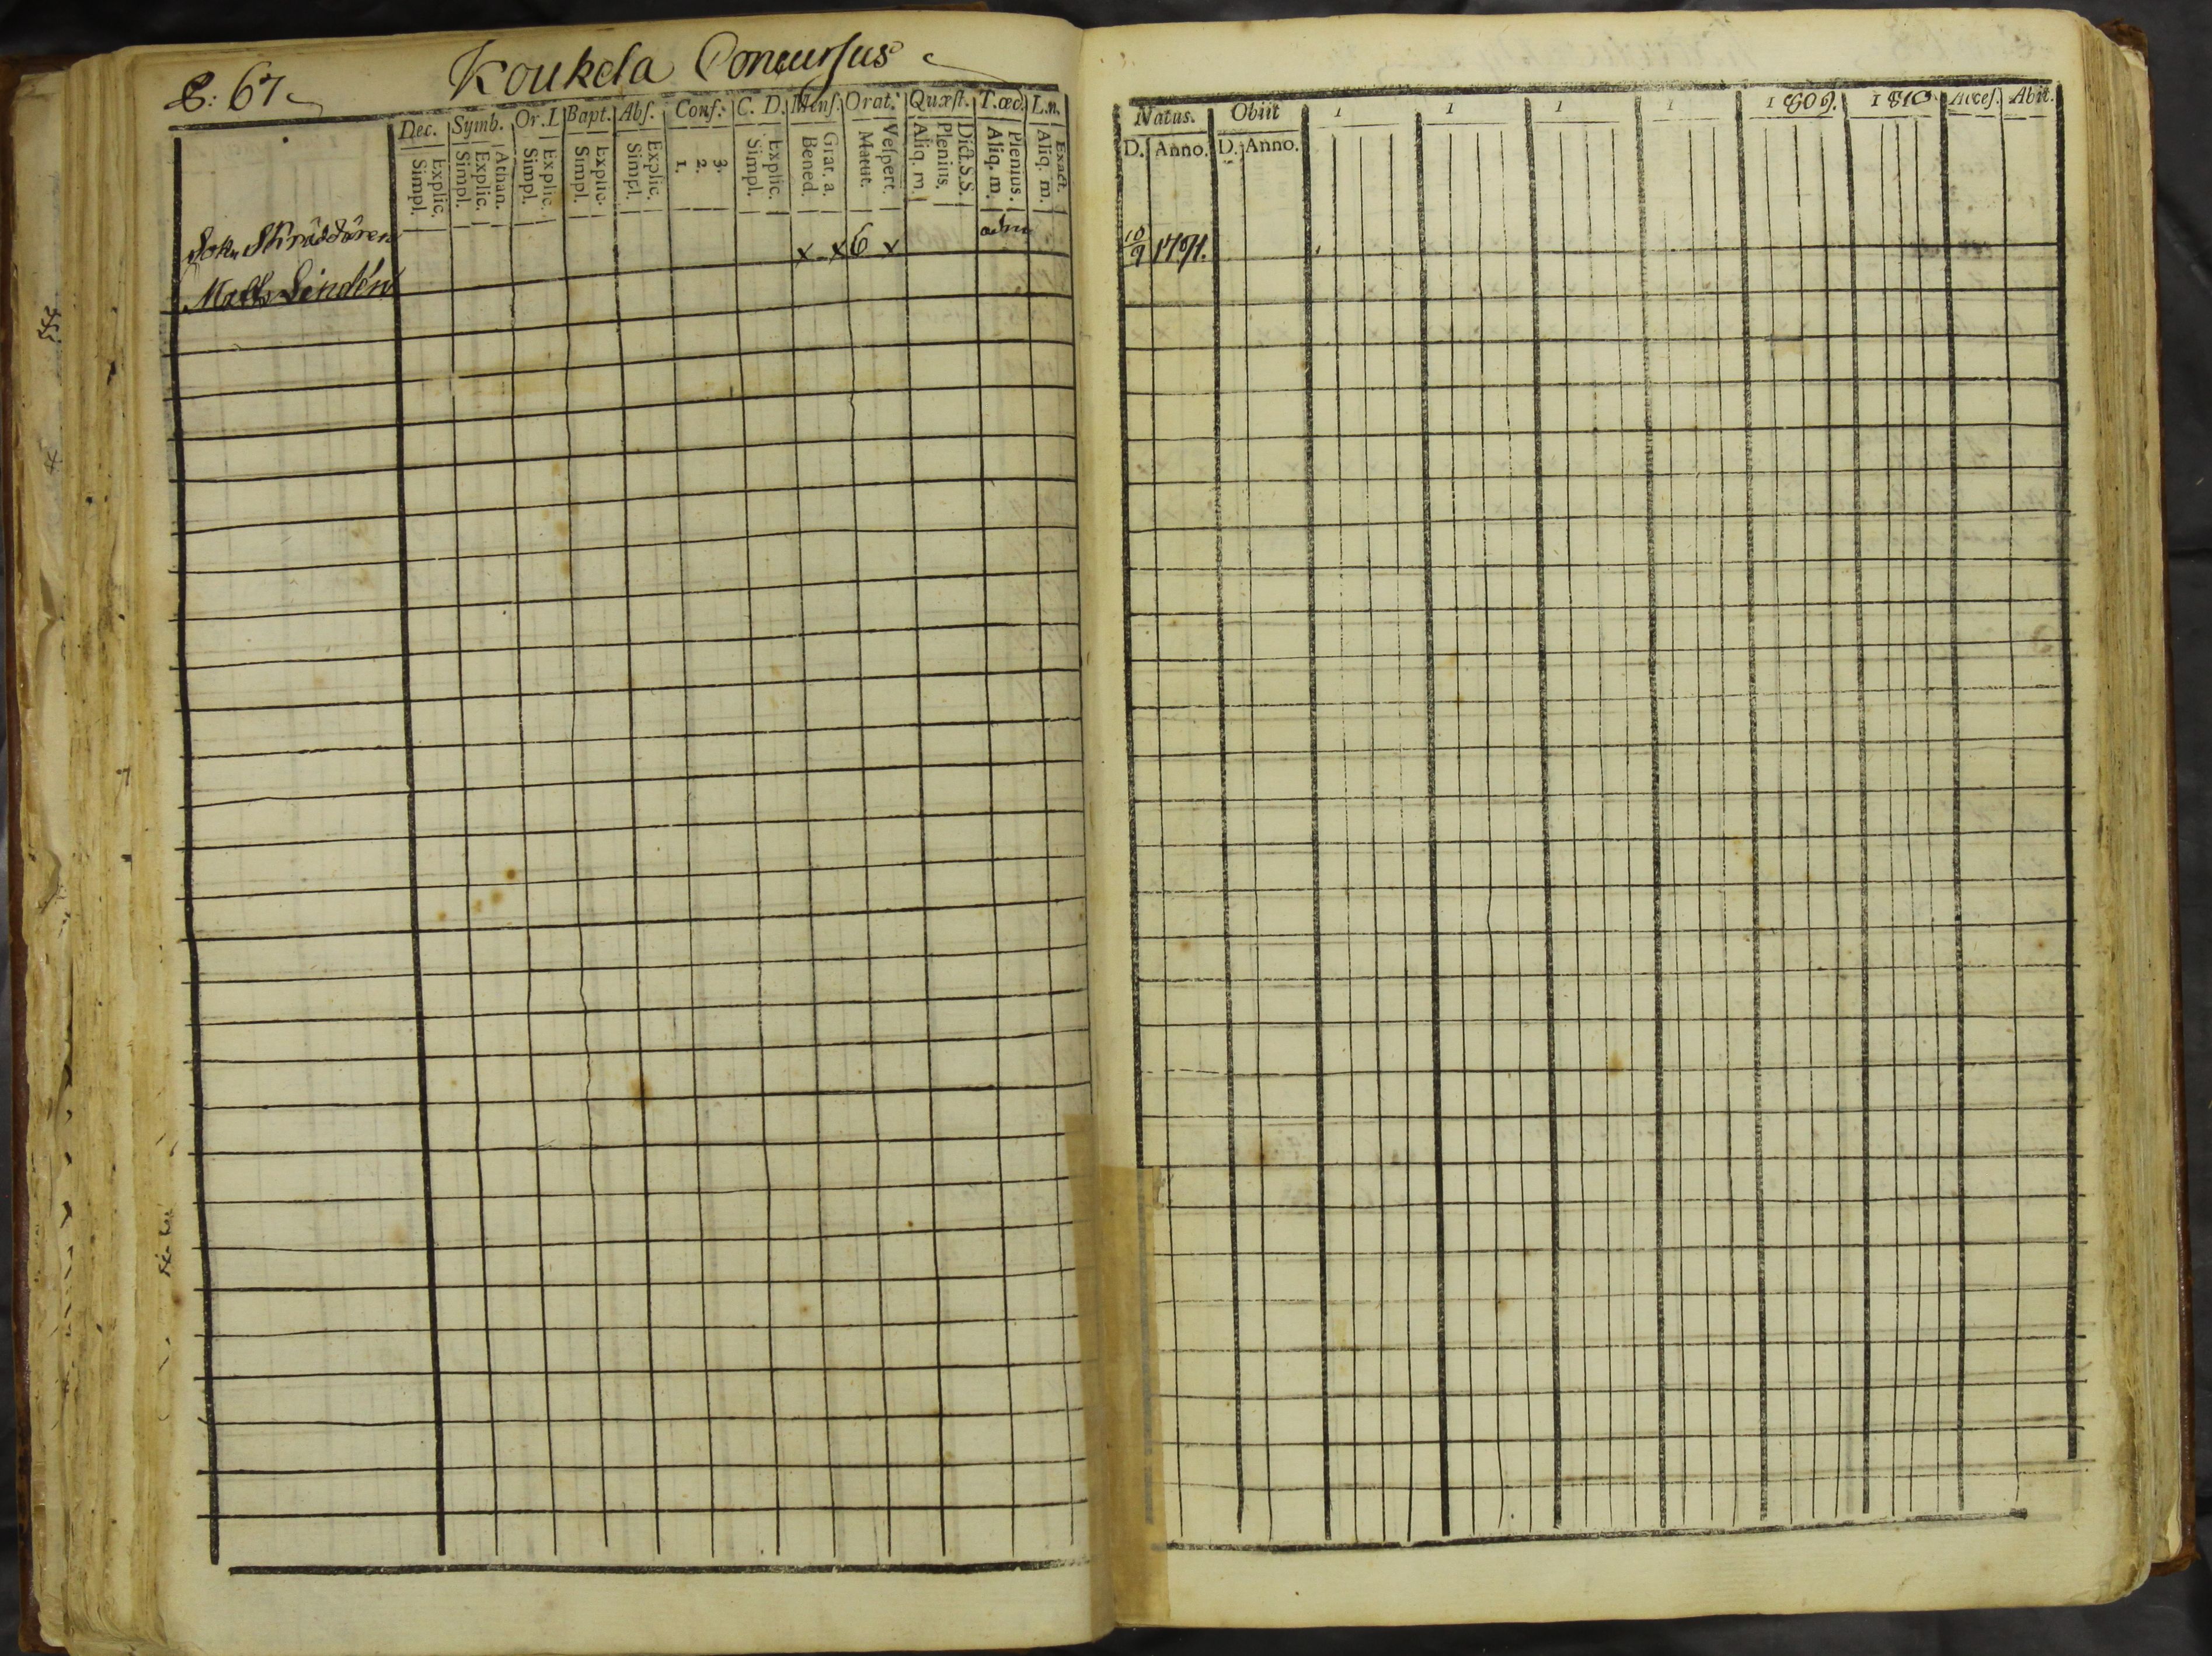 67
Koukela Concursus
Dec. Symb. Or.L Bapt. Abſ. Conf. C. D. Menſ. Orat. Quæſt. T.œc. L.n.
Explic. Simpl. Athan. Explic. Simpl. Explic. Simpl. Explic. Simpl. Explic. Simpl. 3. 2. 1. Explic. Simpl. Grat. a. Bened. Veſpert. Matut. Dict.S.S. Plenius. Aliq. m. Plenius. Aliq. m. Exact. Aliq. m.
Sokn Skräddaren x x 6 x adm
Matts Lindén
Natus. Obiit 1 1 1 1 1809. 1810 Acceſ. Abit.
D. Anno. D. Anno.
10/9 1791.